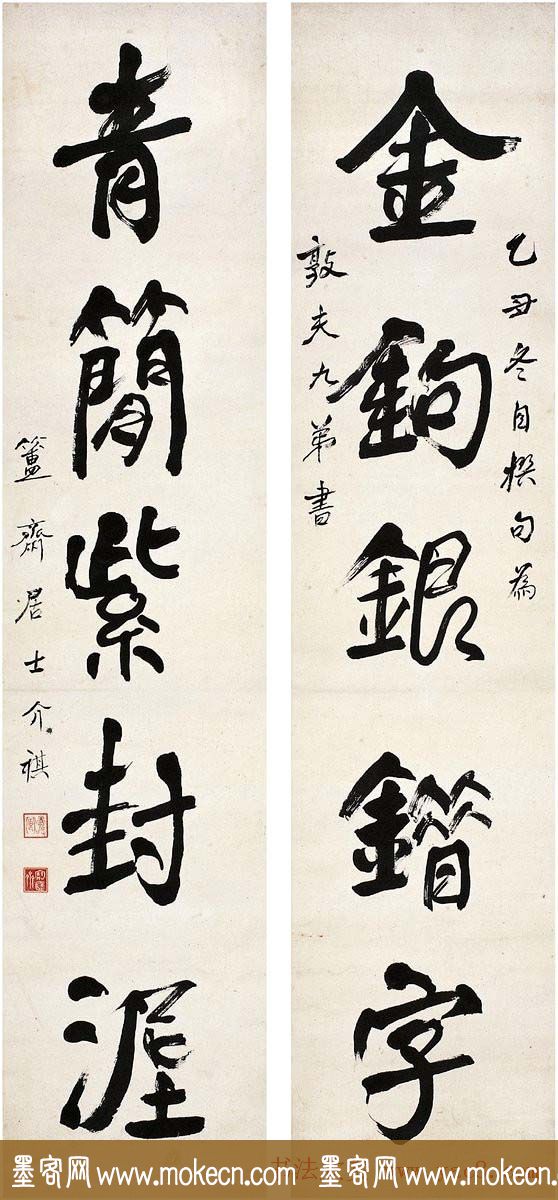 乙丑冬自撰句為
金鉤銀錯字
敦夫九弟書
青簡紫封埿
簠齋居士介祺
墨客网 www.mokecn.com 墨客网 www.mokecn.com